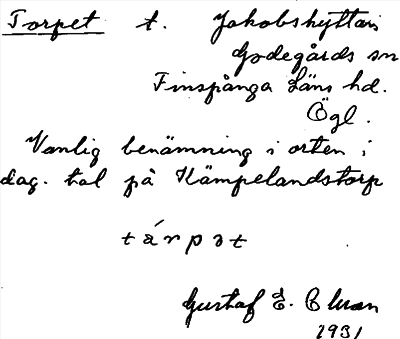 Torpet t. Jakobshyttan
Godegårds sn
Finspånga Läns hd.
Ögl.
Vanlig benämning i orten i
dag. tal på Kämpelandstorp
tárpət
Gustaf E.
1931